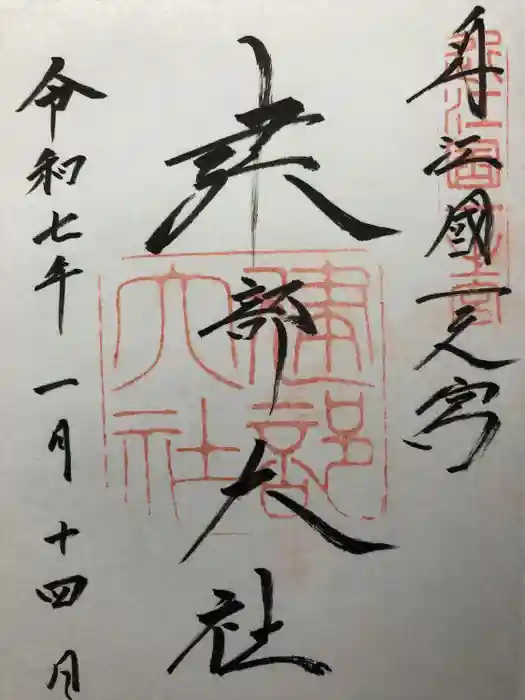 近江國一之宮
建部大社
令和七年一月十四日
建部
大社